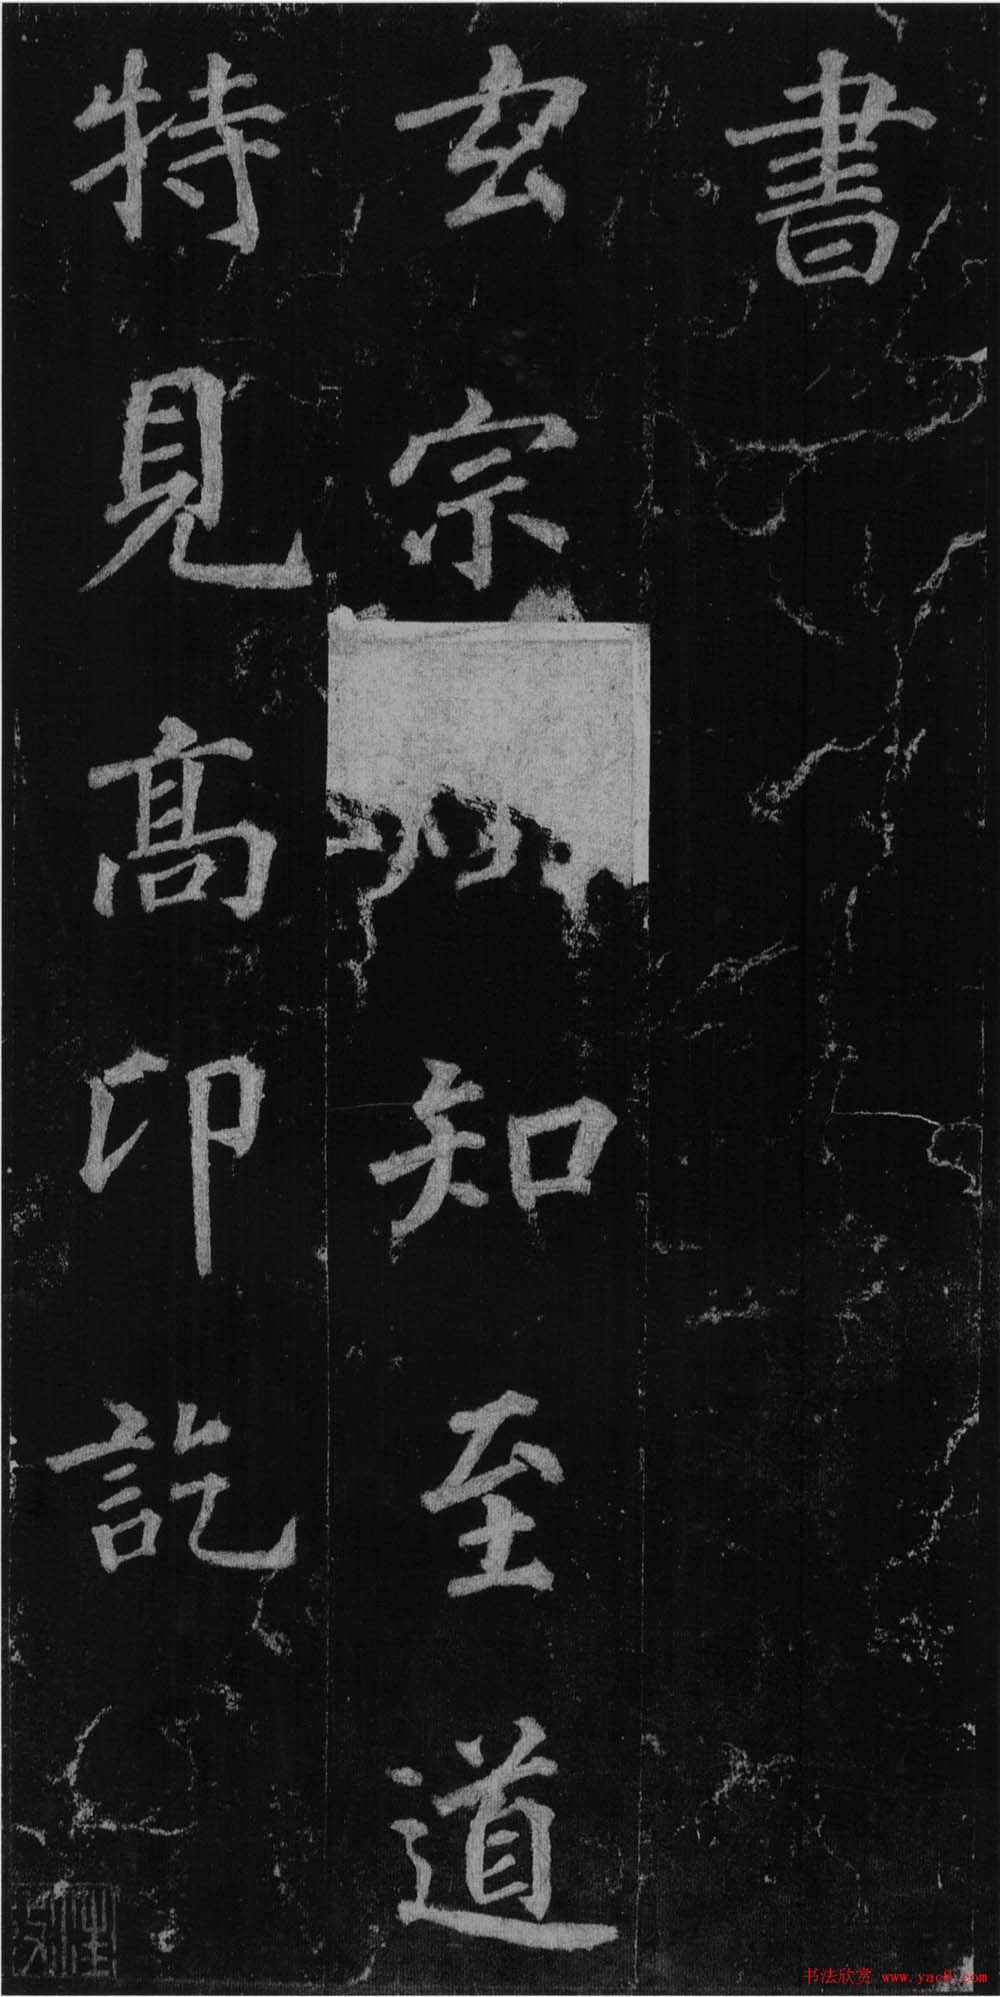 書
玄宗知至道
特見高印訖
书法欣赏 www.yac8.com